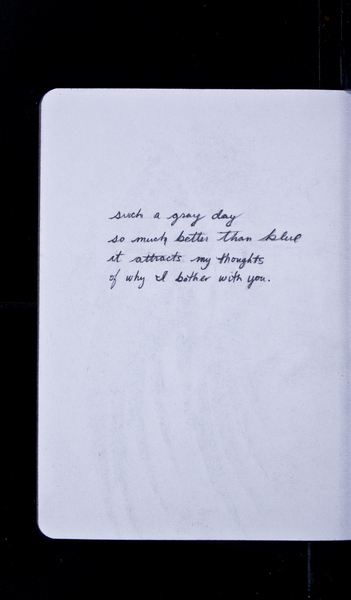 such a gray day
so much better than blue
it attracts my thoughts
of why I bother with you.